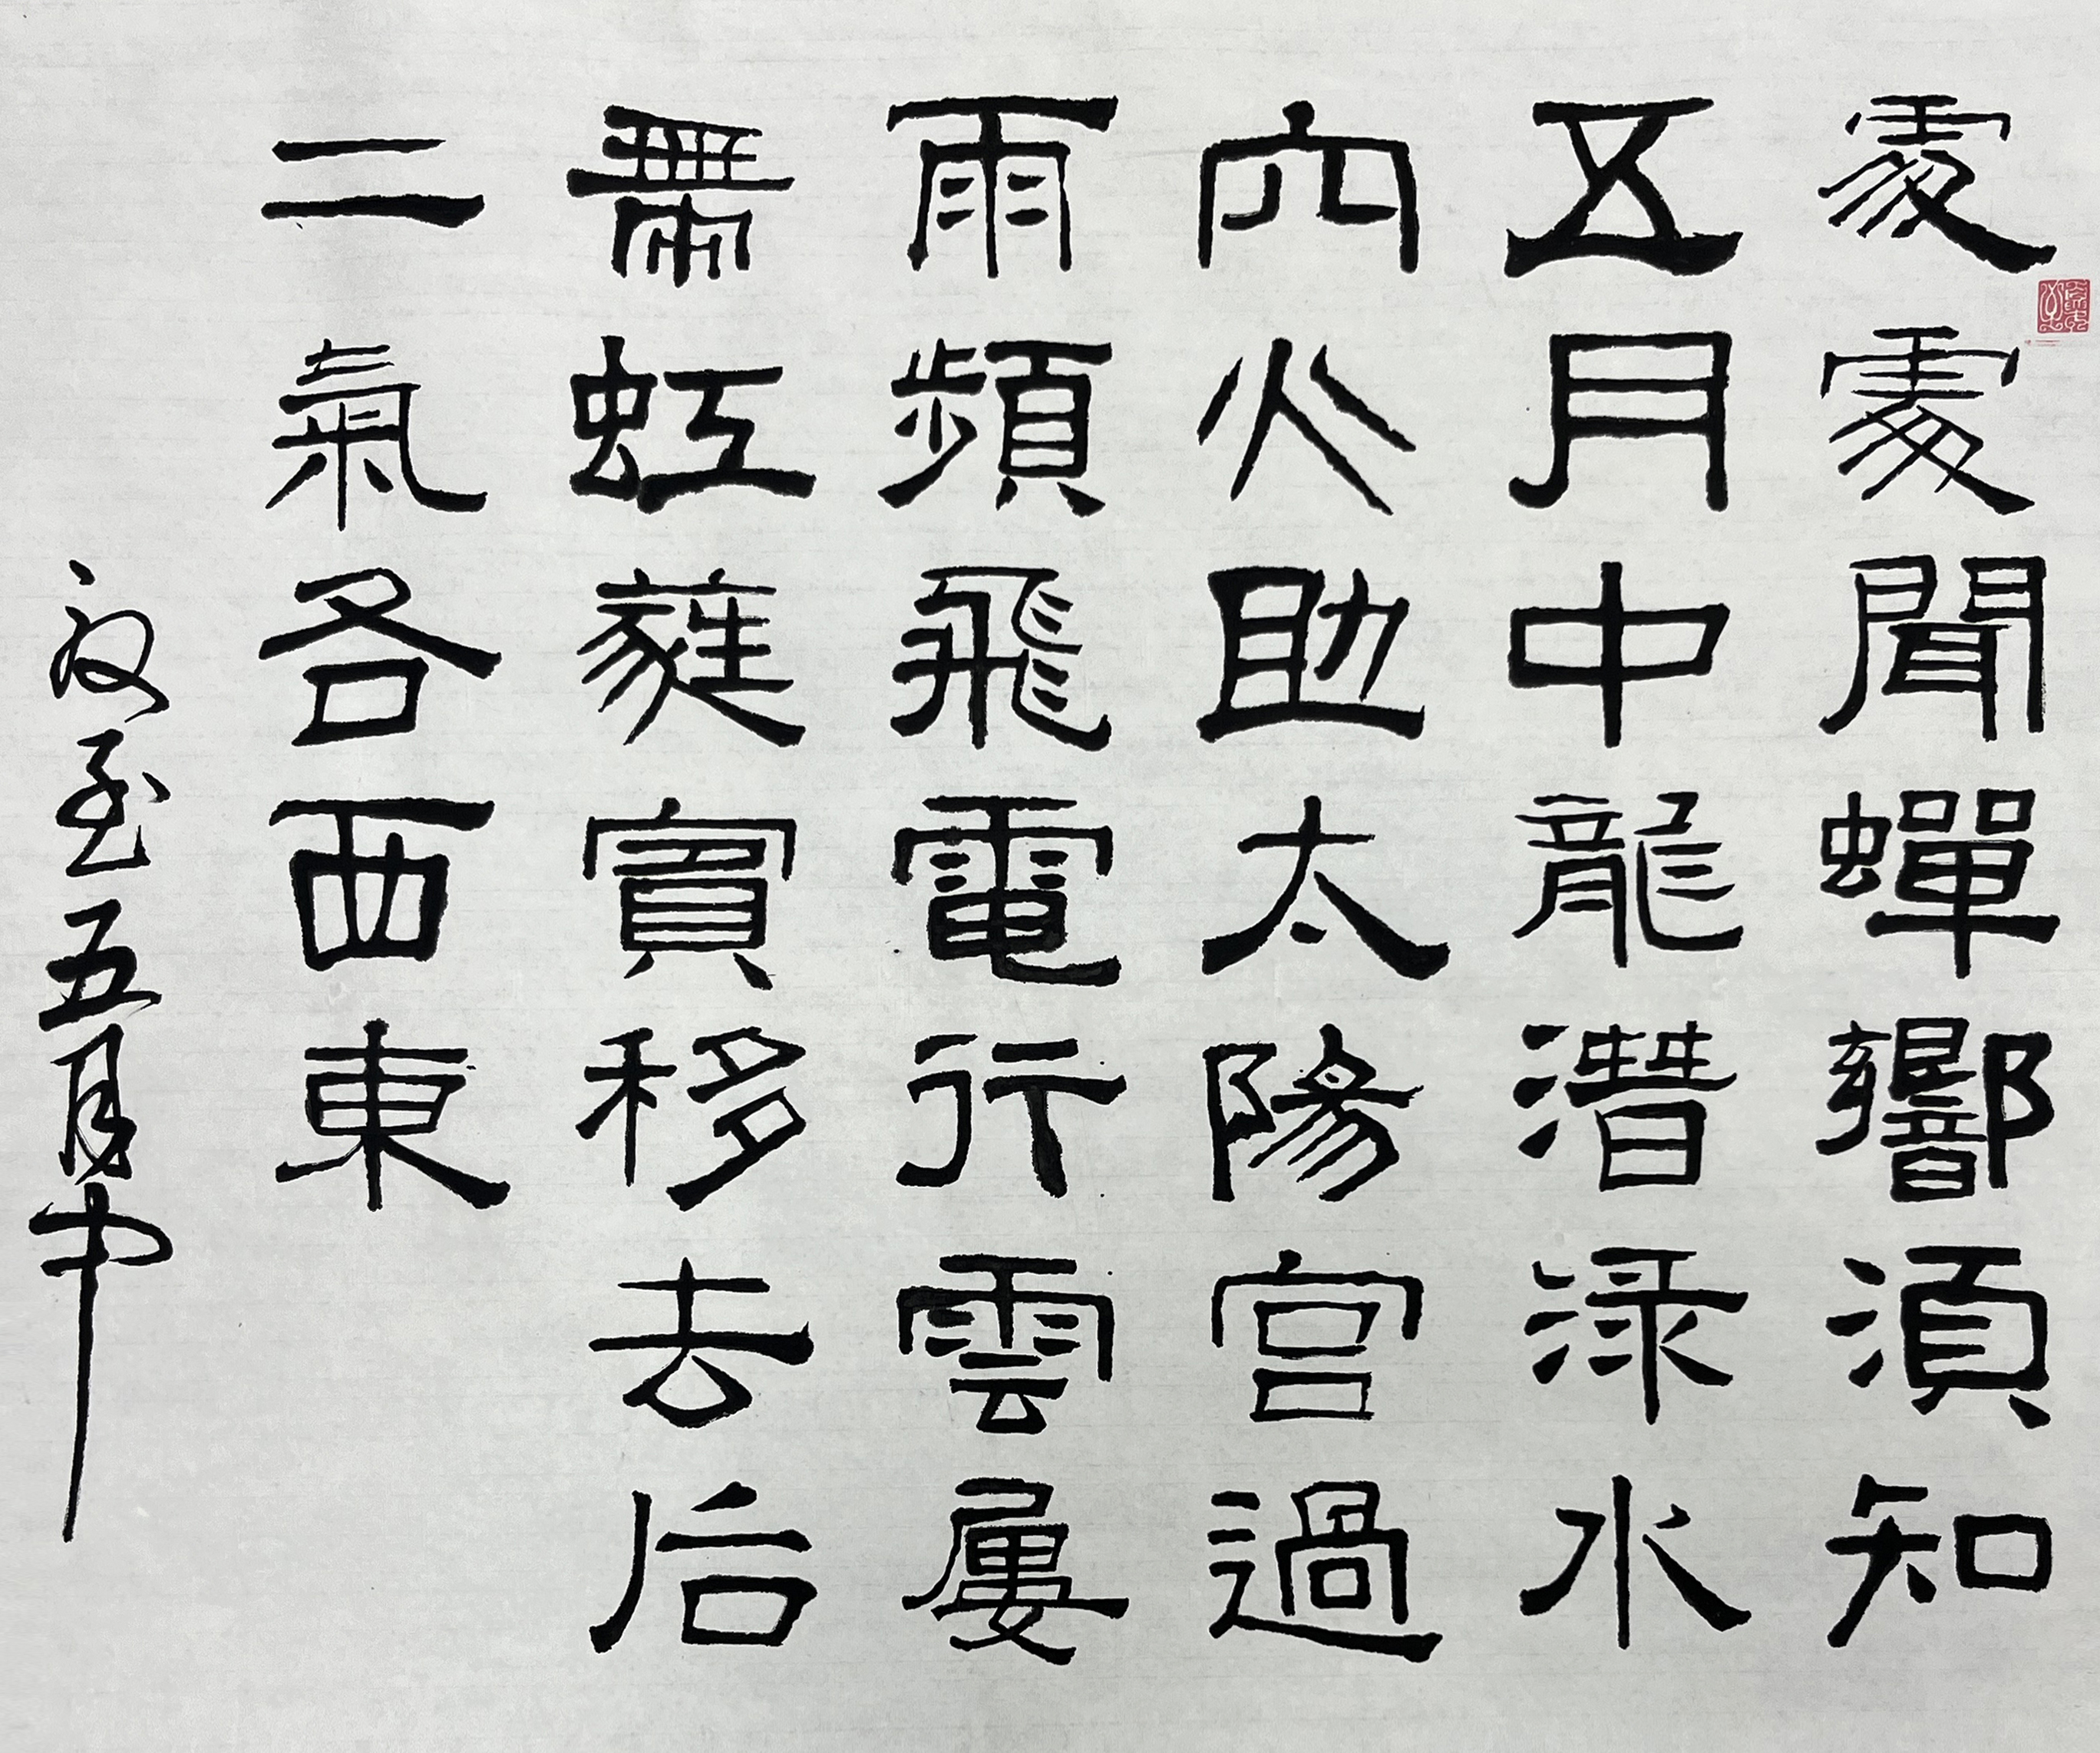 處處聞蟬響須知
五月中龍潛渌水
穴火助太陽宮過
雨頻飛電行雲屢
帶虹蕤賓移去后
二氣各西東
夏至五月中